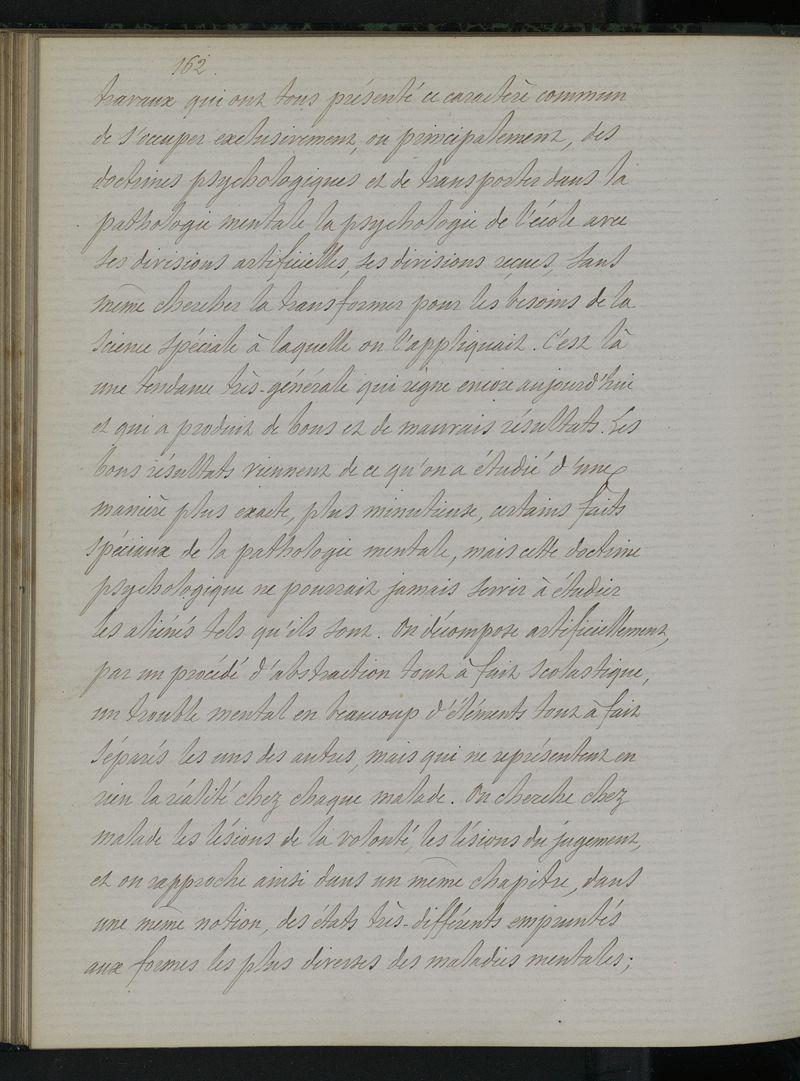 162.
travaux qui ont tous présenté ce caractère commun
de s'occuper exclusivement, ou principalement, des
doctrines psychologiques et de transporter dans la
pathologie mentale la psychologie de l'école avec
ses divisions artificielles, ses divisions reçues, sans
même chercher la transformer pour les besoins de la
science spéciale à laquelle on l'appliquait. C'est là
une tendance très-générale qui règne encore aujourd'hui
et qui a produit de bons et de mauvais résultats. Les
bons résultats viennent de ce qu'on a étudié d'une
manière plus exacte, plus minutieuse, certains faits
spéciaux de la pathologie mentale, mais cette doctrine
psychologique ne pourrait jamais servir à étudier
les aliénés tels qu'ils sont. On décompose artificiellement,
par un procédé d'abstraction tout à fait scolastique,
un trouble mental en beaucoup d'éléments tout à fait
séparés les uns des autres, mais qui ne représentent en
rien la réalité chez chaque malade. On cherche chez
malade les lésions de la volonté, les lésions du jugement,
et on rapproche ainsi dans un même chapitre, dans
une même notion, des états très-différents empruntés
aux formes les plus diverses des maladies mentales;